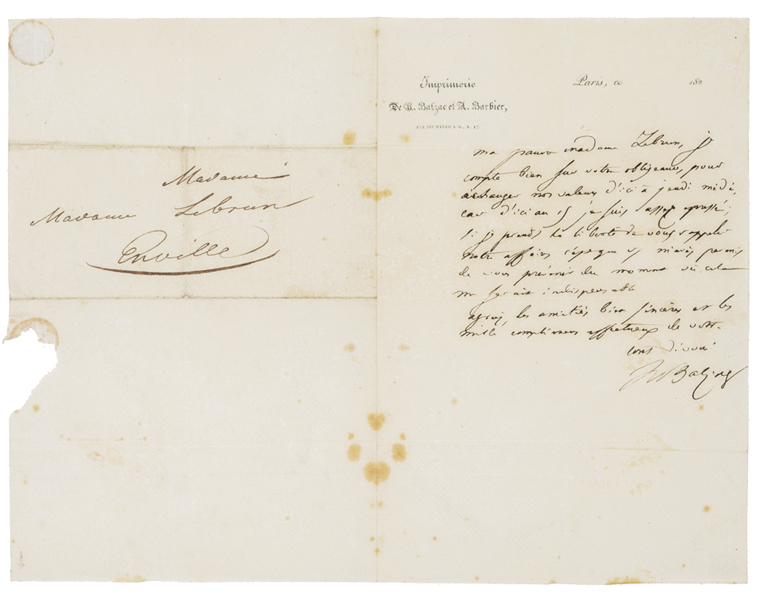 Madame
Madame Lebrun
Enville
Imprimerie
De H. Balzac et A. Barbier,
Paris, ce 182
ma pauvre madame Lebrun, je
compte bien sur votre obligeance, pour
échanger nos valeurs d'ici à jeudi midi,
car d'ici au 15 je suis assez pressé;
si je prends la liberté de vous rappeler
notre affaire c'est que vs m'avez permis
de vous prévenir du moment où cela
me serait indispensable
agréez les amitiés bien sincères et les
mille complimens affectueux de votre
tout dévoué
H Balzac